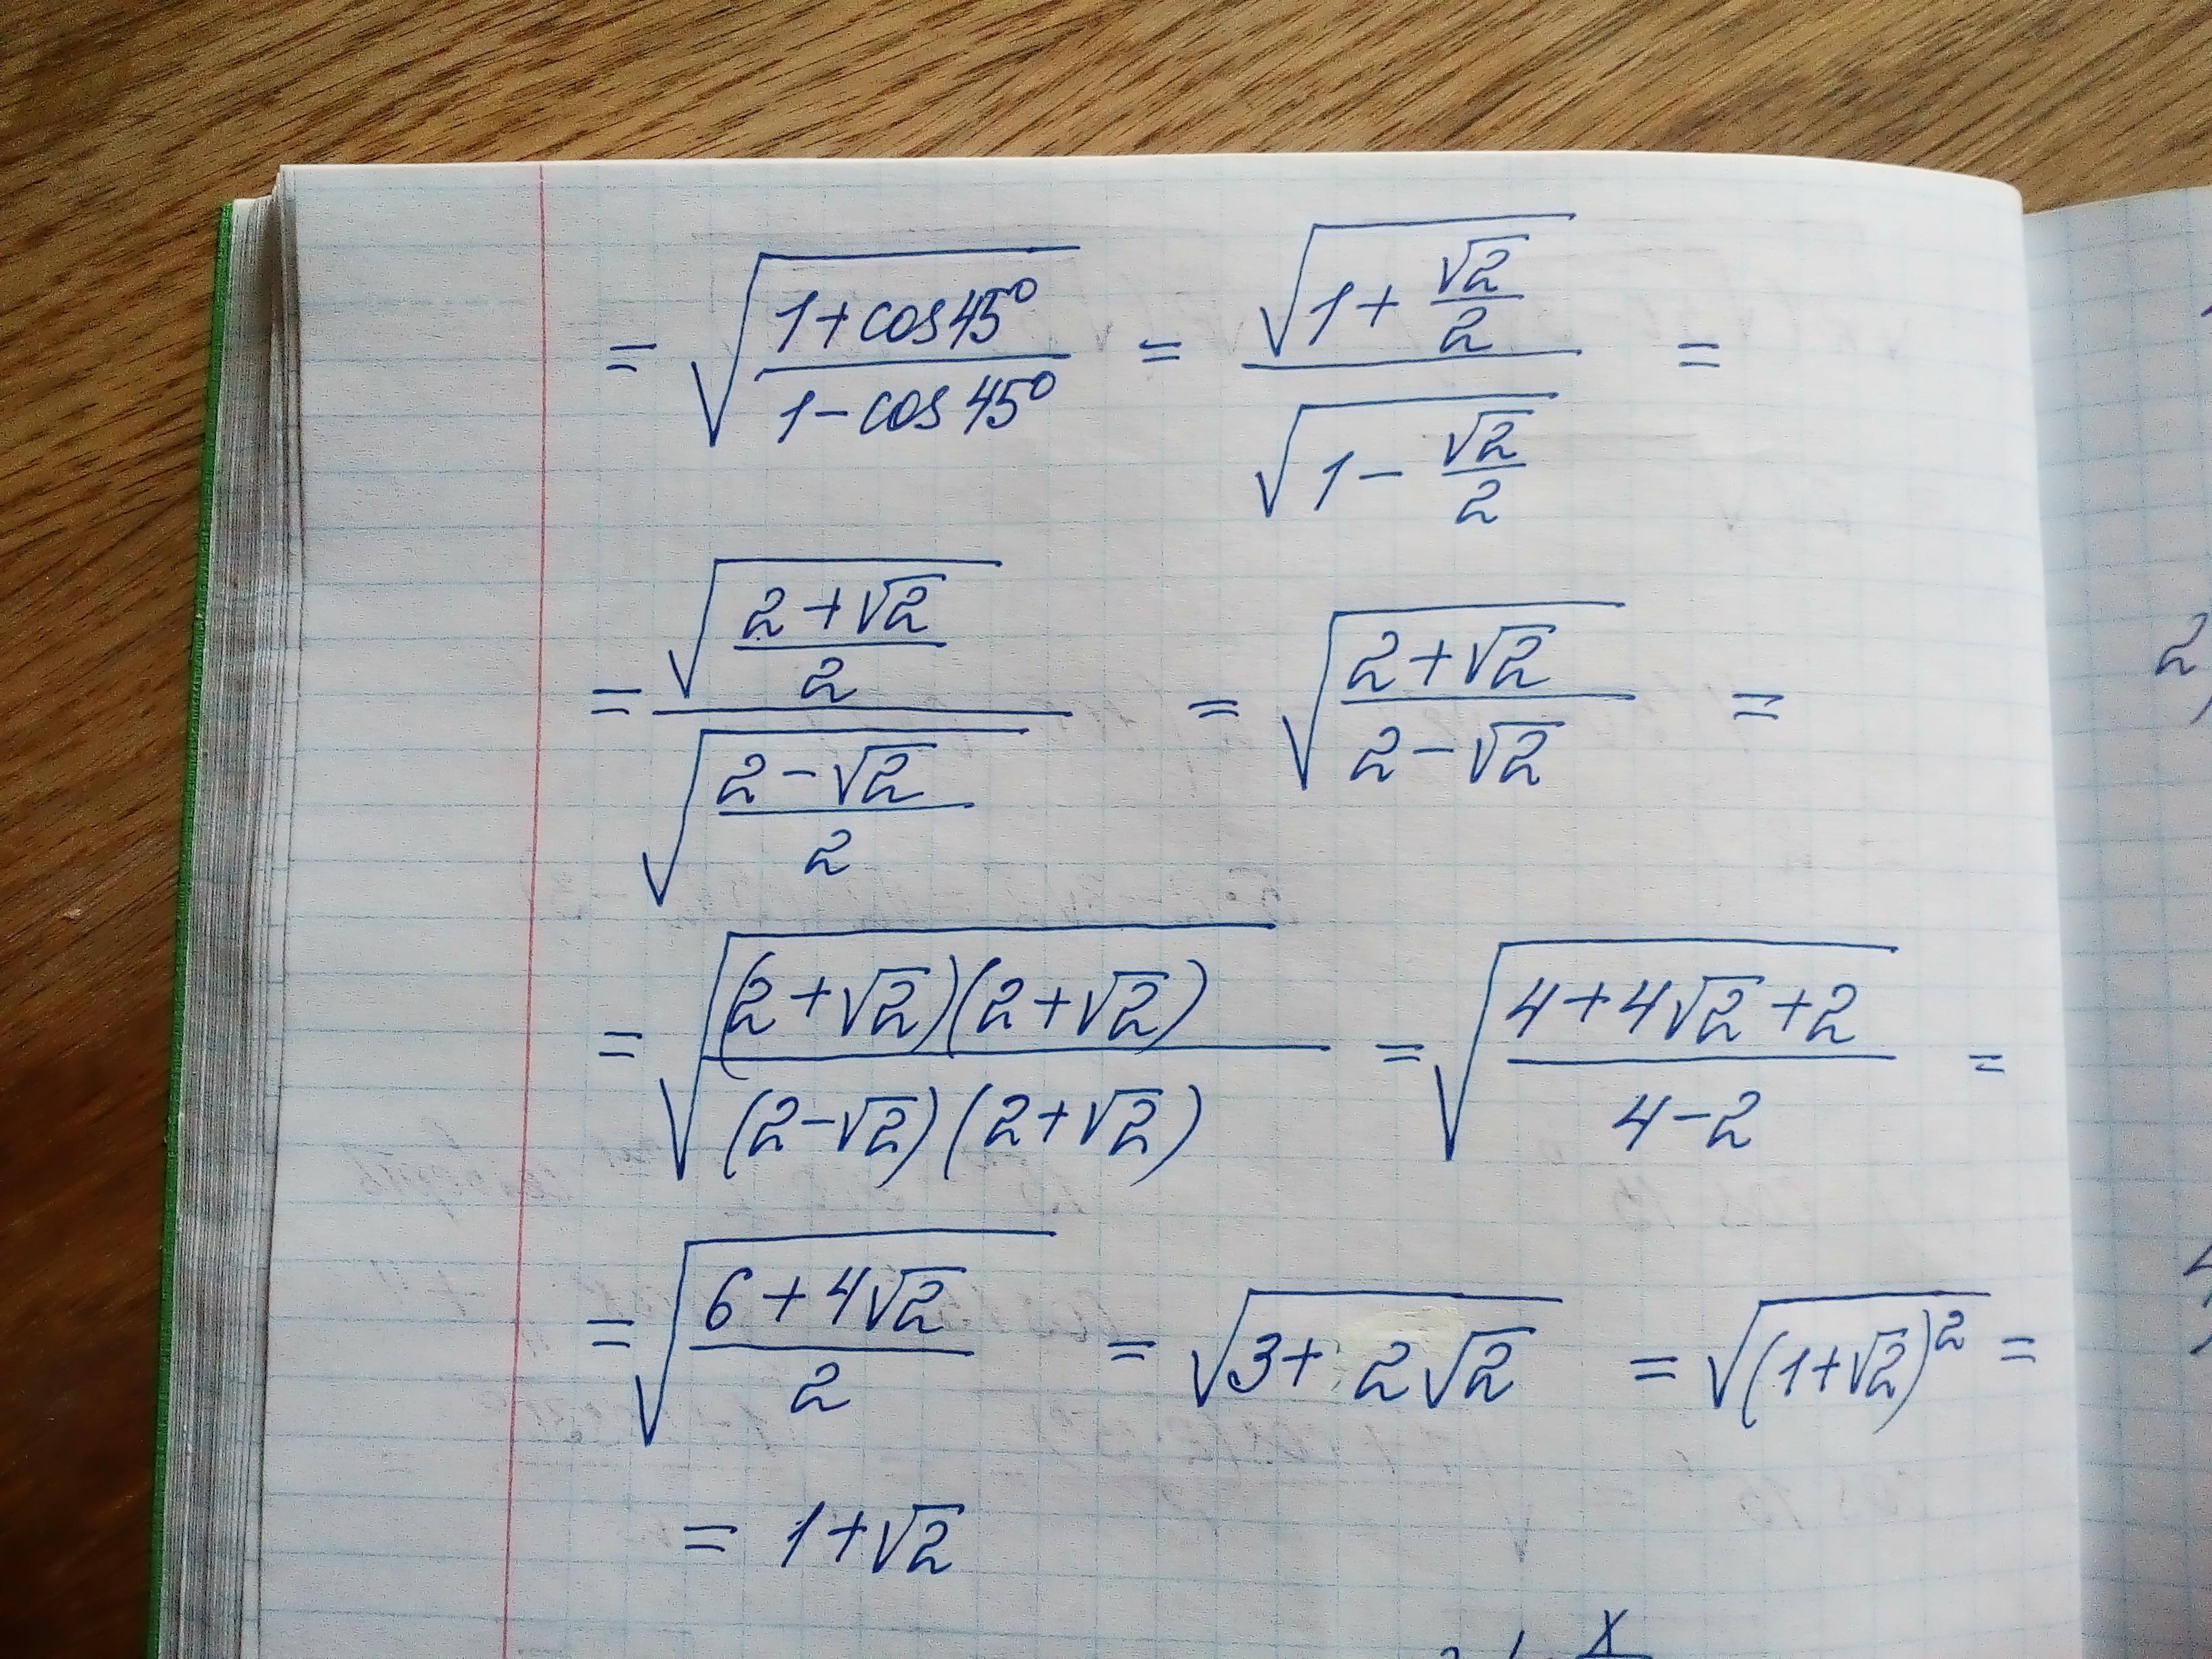 = √((1+cos45°)/(1-cos45°)) = √(1+√2/2)/√(1-√2/2) =
= √((2+√2)/2)/√((2-√2)/2) = √((2+√2)/(2-√2)) =
= √((2+√2)(2+√2)/((2-√2)(2+√2))) = √((4+4√2+2)/(4-2)) =
= √((6+4√2)/2) = √(3+2√2) = √((1+√2)²) =
= 1+√2